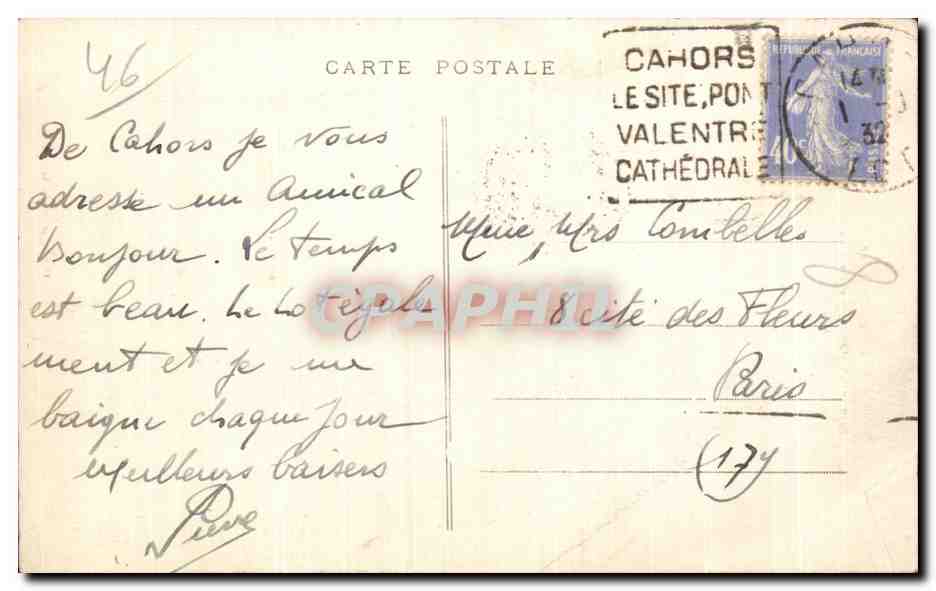 46
CARTE POSTALE
CAHORS
LE SITE, PONT
VALENTRE
CATHÉDRALE
REPUBLIQUE FRANÇAISE
40c
14
1
32
LOT
De Cahors je vous
adresse un Amical
bonjour. Le temps
est beau. Le Lot égale
ment et je me
baigne chaque jour
Meilleurs baisers
Pierre
Mme, Mrs Combelles
8 cité des Fleurs
Paris
(17)
8
CPAPHIL